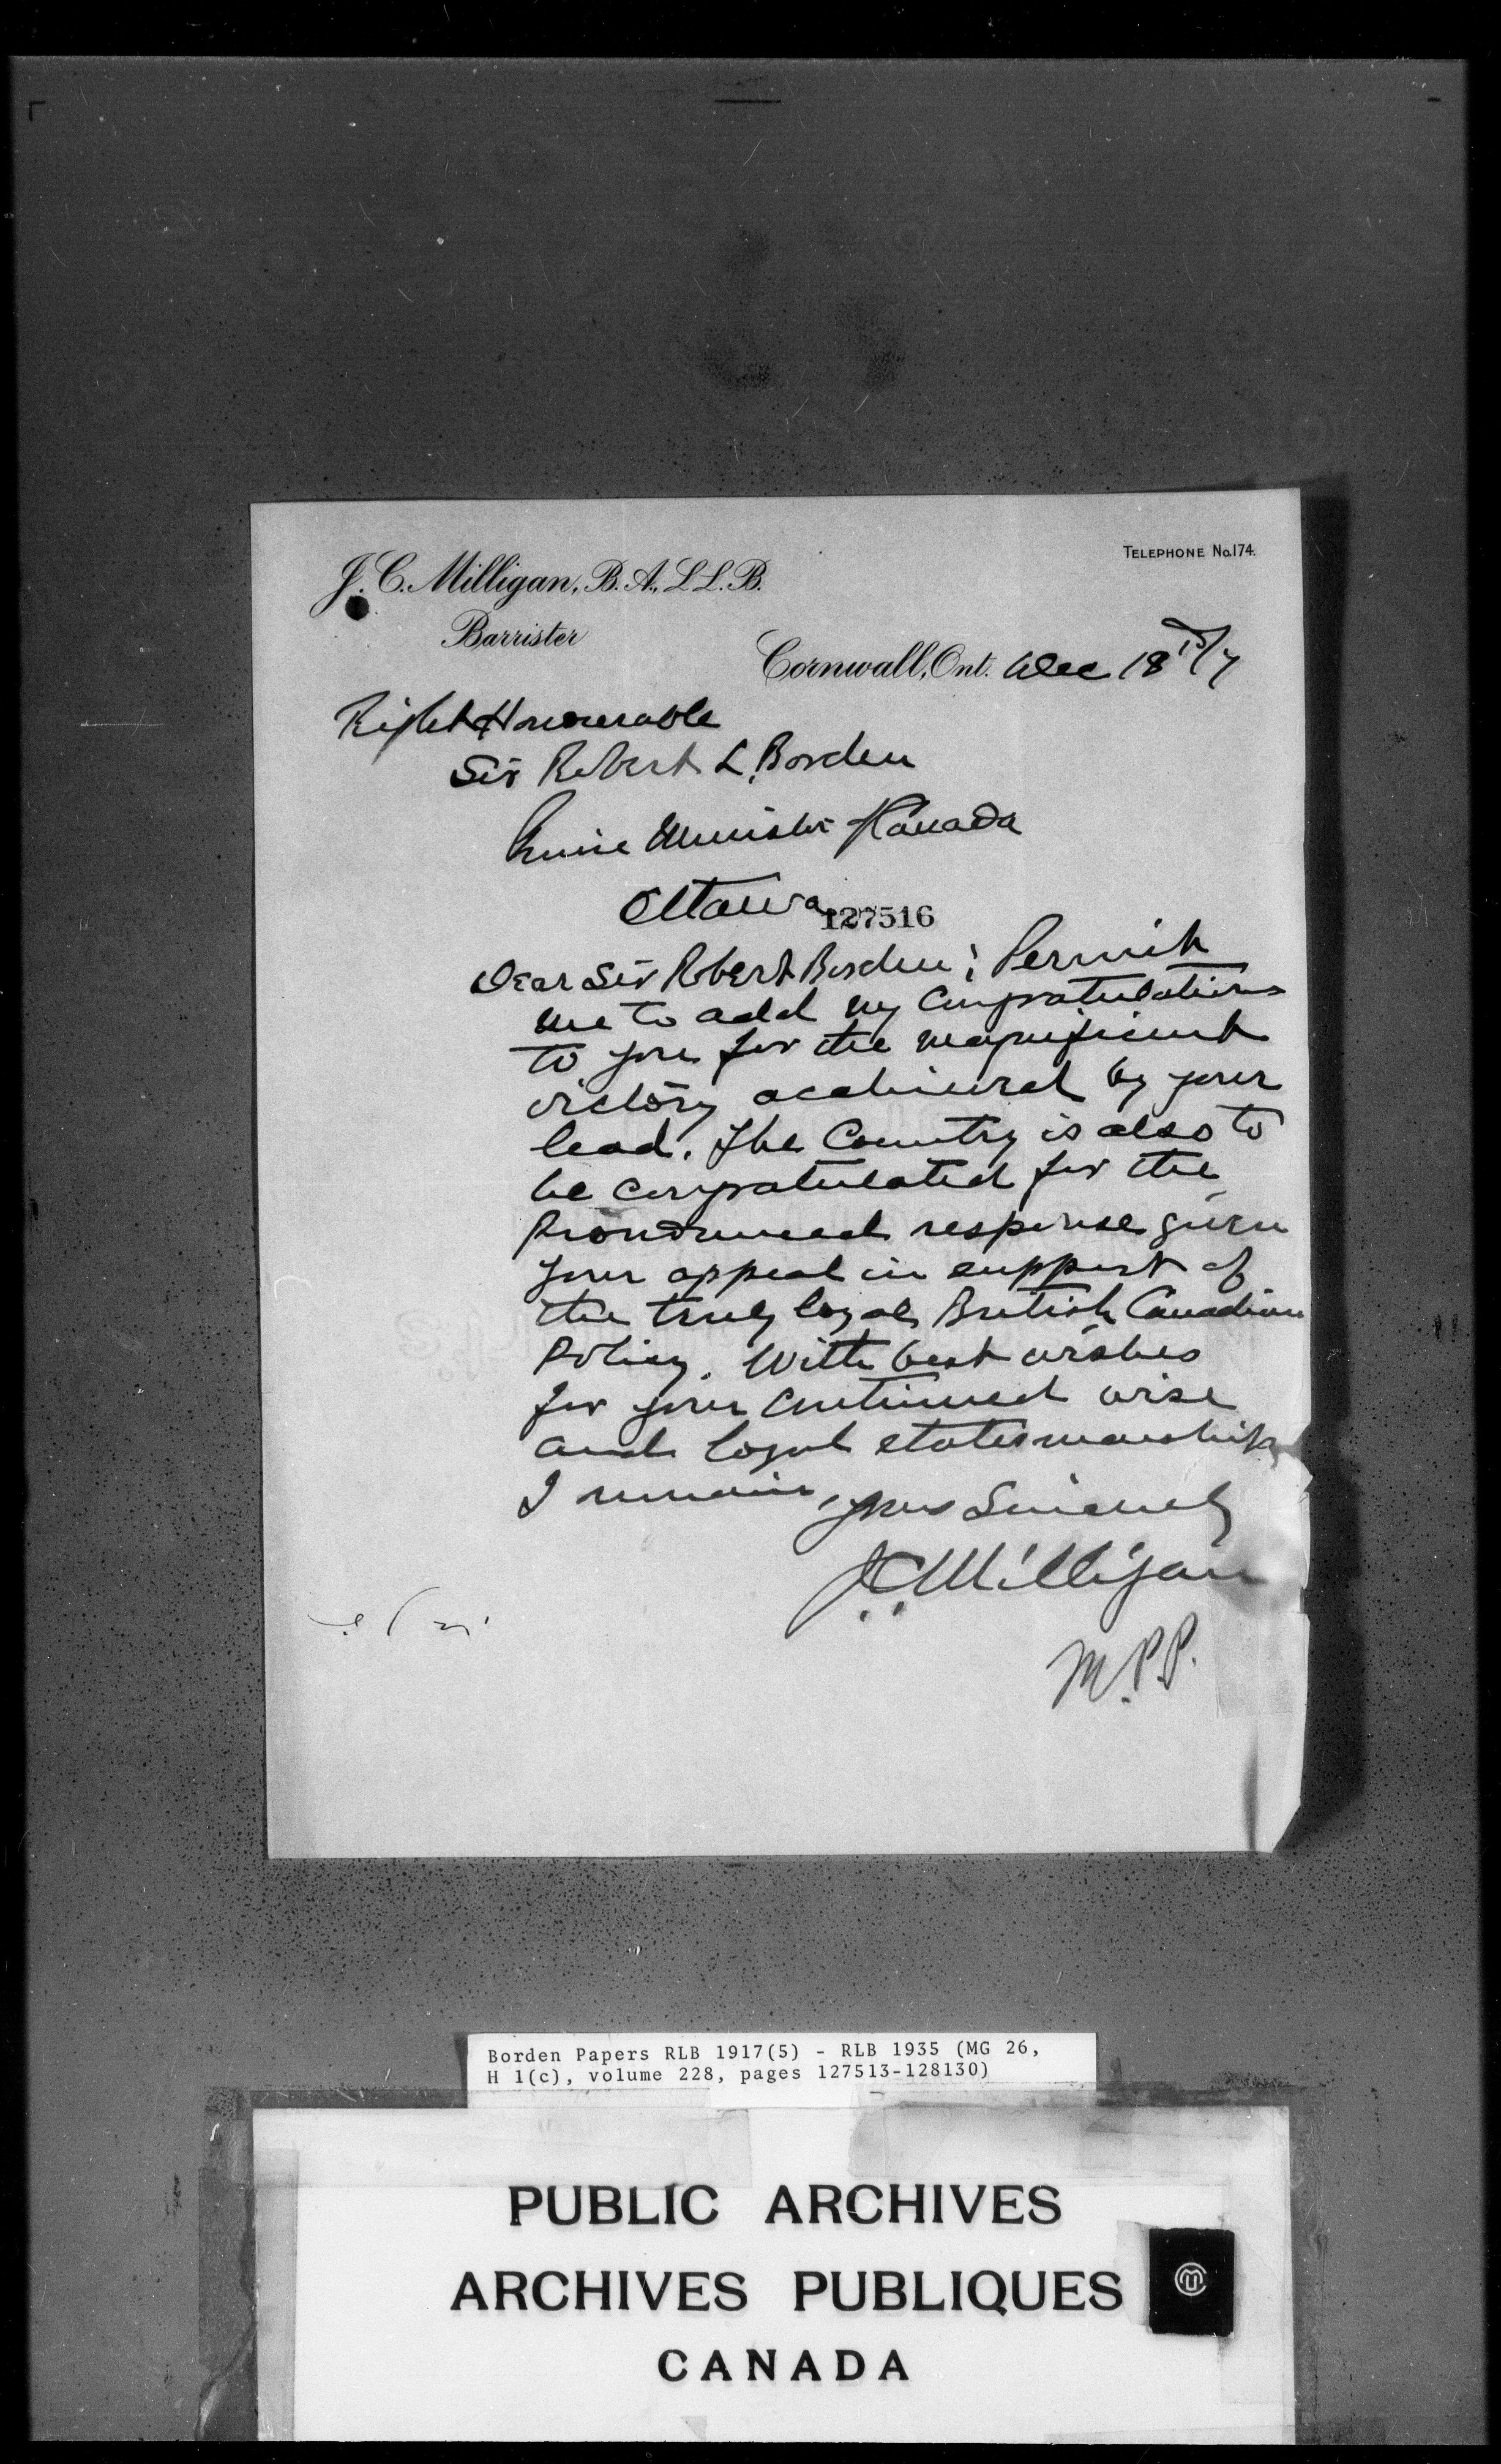 TELEPHONE No.174.
J. C. Milligan, B. A., L L. B.
Barrister
Cornwall, Ont. Dec 18 /17
Right Honourable
Sir Robert L. Borden
Prime Minister Canada
Ottawa
127516
Dear Sir Robert Borden; Permit
me to add my congratulations
to you for the magnificent
victory achieved by your
lead. The Country is also to
be congratulated for the
pronounced response given
your appeal in support of
the truly loyal British Canadian
Policy. With best wishes
for your continued wise
and loyal statesmanship
I remain, yours Sincerely
J.C. Milligan
M.P.P.
Borden Papers RLB 1917(5) - RLB 1935 (MG 26,
H 1(c), volume 228, pages 127513-128130)
PUBLIC ARCHIVES
ARCHIVES PUBLIQUES
CANADA